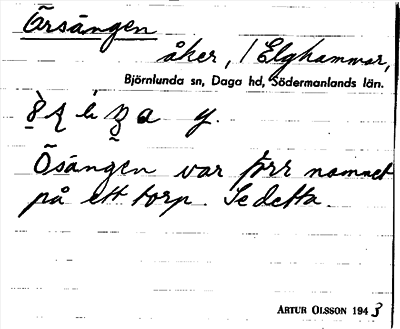 Örsängen
åker, / Elghammar,
Björnlunda sn, Daga hd, Södermanlands län.
y.
Ösängen var förr namnet
på ett torp. Se detta.
ARTUR OLSSON 1943